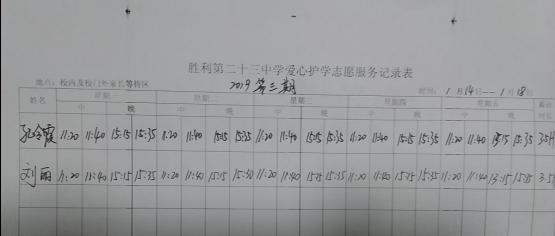 胜利第二十三中学爱心护学志愿服务记录表
2019 第三期
地点：校内及校门外家长等待区 时间：1月14日--1月18日
姓名 星期一 星期二 星期三 星期四 星期五 累计时长
中 晚 中 晚 中 晚 中 晚 中 晚
孔令霞 11:20 11:40 15:15 15:35 11:20 11:40 15:15 15:35 11:20 11:40 15:15 15:35 11:20 11:40 15:15 15:35 11:20 11:40 15:15 15:35
刘丽 11:20 11:40 15:15 15:35 11:20 11:40 15:15 15:30 11:20 11:40 15:15 15:35 11:20 11:40 15:15 15:35 11:20 11:40 15:35